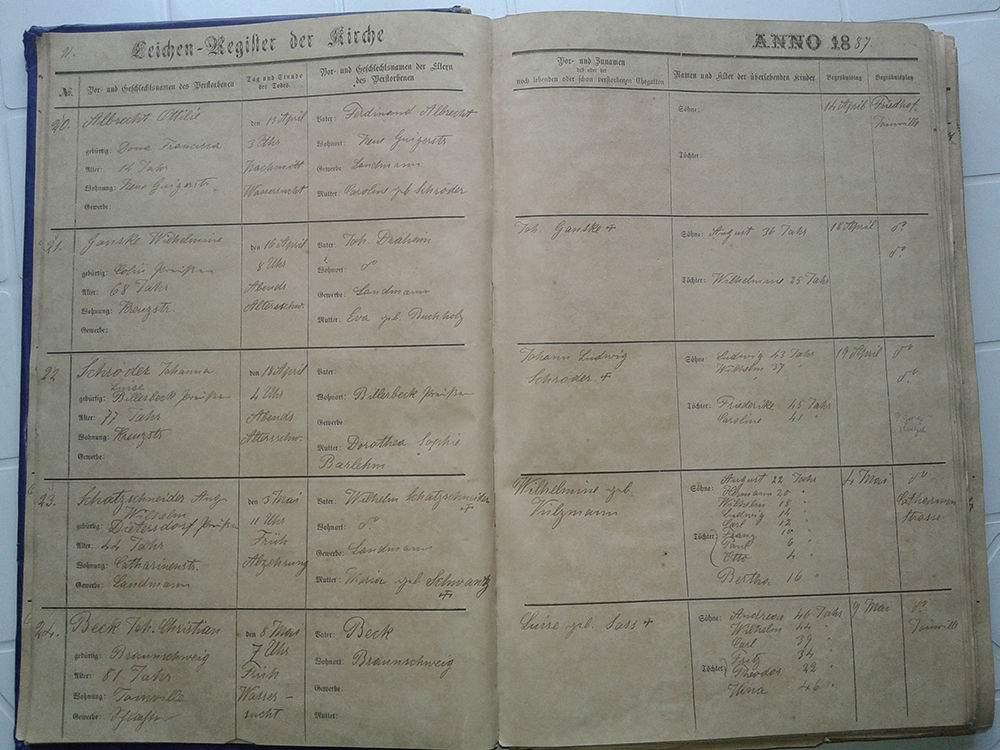 21.
Leichen-Register der Kirche
No.
Vor- und Geschlechtsnamen des Verstorbenen
Tag und Stunde
des Todes.
Vor- und Geschlechtsnamen der Eltern
des Verstorbenen
20.
Albrecht Ottilie
gebürtig: Dona Francisca
Alter: 14 Jahr
Wohnung: Neue
Gewerbe:
den 13 April
3 Uhr
Nachmitt
Wassersucht
Vater: Ferdinand Albrecht
Wohnort: Neue
Gewerbe: Landmann
Mutter: Caroline geb Schröder
21.
Ganske Wilhelmine
gebürtig: Preußen
Alter: 68 Jahr
Wohnung: Kreuzstr.
Gewerbe:
den 16 April
8 Uhr
Abends
Altersschw.
Vater: Joh. Draheim
Wohnort: do
Gewerbe: Landmann
Mutter: Eva geb. Buchholz
22
Schröder Johanna
Luise
gebürtig: Billerbeck Preußen
Alter: 77 Jahr
Wohnung: Kreuzstr
Gewerbe:
den 18 April
4 Uhr
Abends
Altersschw.
Vater:
Wohnort: Billerbeck Preußen
Gewerbe
Mutter: Dorothea Sophie
Barlehm
23.
Schatzschneider Aug.
Wilhelm
gebürtig: Dietersdorf Preußen
Alter: 44 Jahr
Wohnung: Catharinenstr.
Gewerbe: Landmann
den 3 Mai
11 Uhr
Früh
Abzehrung
Vater: Wilhelm Schatzschneider
Wohnort: do
Gewerbe: Landmann
Mutter: Maria geb Schwantz
24.
Beck Joh. Christian
gebürtig: Braunschweig
Alter: 81 Jahr
Wohnung: Joinville
Gewerbe:
den 8 Mai
7 Uhr
Früh
Wasser-
sucht
Vater: Beck
Wohnort: Braunschweig
Gewerbe:
Mutter:
ANNO 1887.
Vor- und Zunamen
des oder der
noch lebenden oder schon verstorbenen Ehegatten
Namen und Alter der überlebenden Kinder
Begräbnistag
Begräbnisplatz
Söhne:
Töchter:
14 April
Friedhof
Joinville
Joh. Ganske +
Söhne: August 36 Jahr
Töchter: Wilhelmine 25 Jahr
18 April
do
do
Johann Ludwig
Schröder +
Söhne Ludwig 43 Jahr
Wilhelm 37 "
Töchter: Friederike 45 Jahr
Caroline 41 "
19 April
do
do
Wilhelmine geb.
Vulzmann
Söhne: August 22 Jahr
Hermann 20 "
Wilhelm 18 "
Ludwig 14 "
Carl 12 "
Töchter: Franz 10 "
Paul 6 "
Otto 4 "
Bertha 16 "
4 Mai
do
Catharinen
strasse
Luise geb. Sass +
Söhne: Andreas 46 Jahr
Wilhelm 44 "
Carl 39 "
Fritz 34 "
Töchter: Theodor 32 "
46 "
9 Mai
do
Joinville